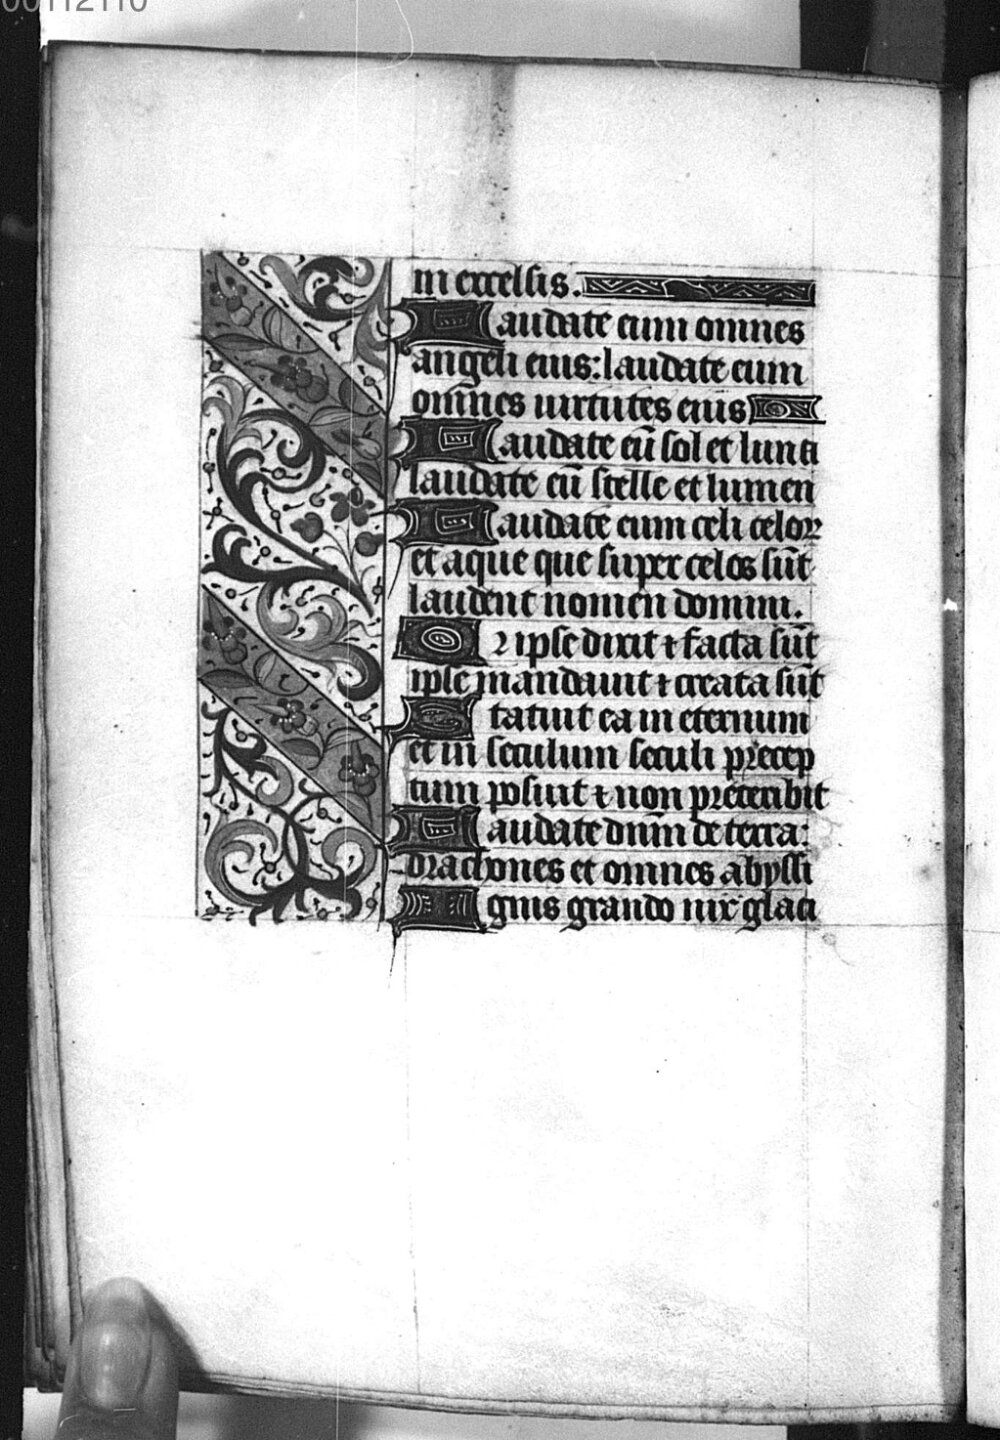 00112110
in excelsis.
Laudate eum omnes
angeli eius: laudate eum
om̄nes uirtutes eius
Laudate eū sol et luna
laudate eū stelle et lumen
Laudate eum celi celoꝝ
et aque que super celos sūt
laudent nomen domini.
Qꝛ ipse dixit ⁊ facta sūt
ipse mandauit ⁊ creata sūt
Statuit ea in eternum
et in seculum seculi precep
tum posuit ⁊ non preteribit
Laudate dnm̄ de terra:
drachones et omnes abyssi
Ignis grando nix glaci